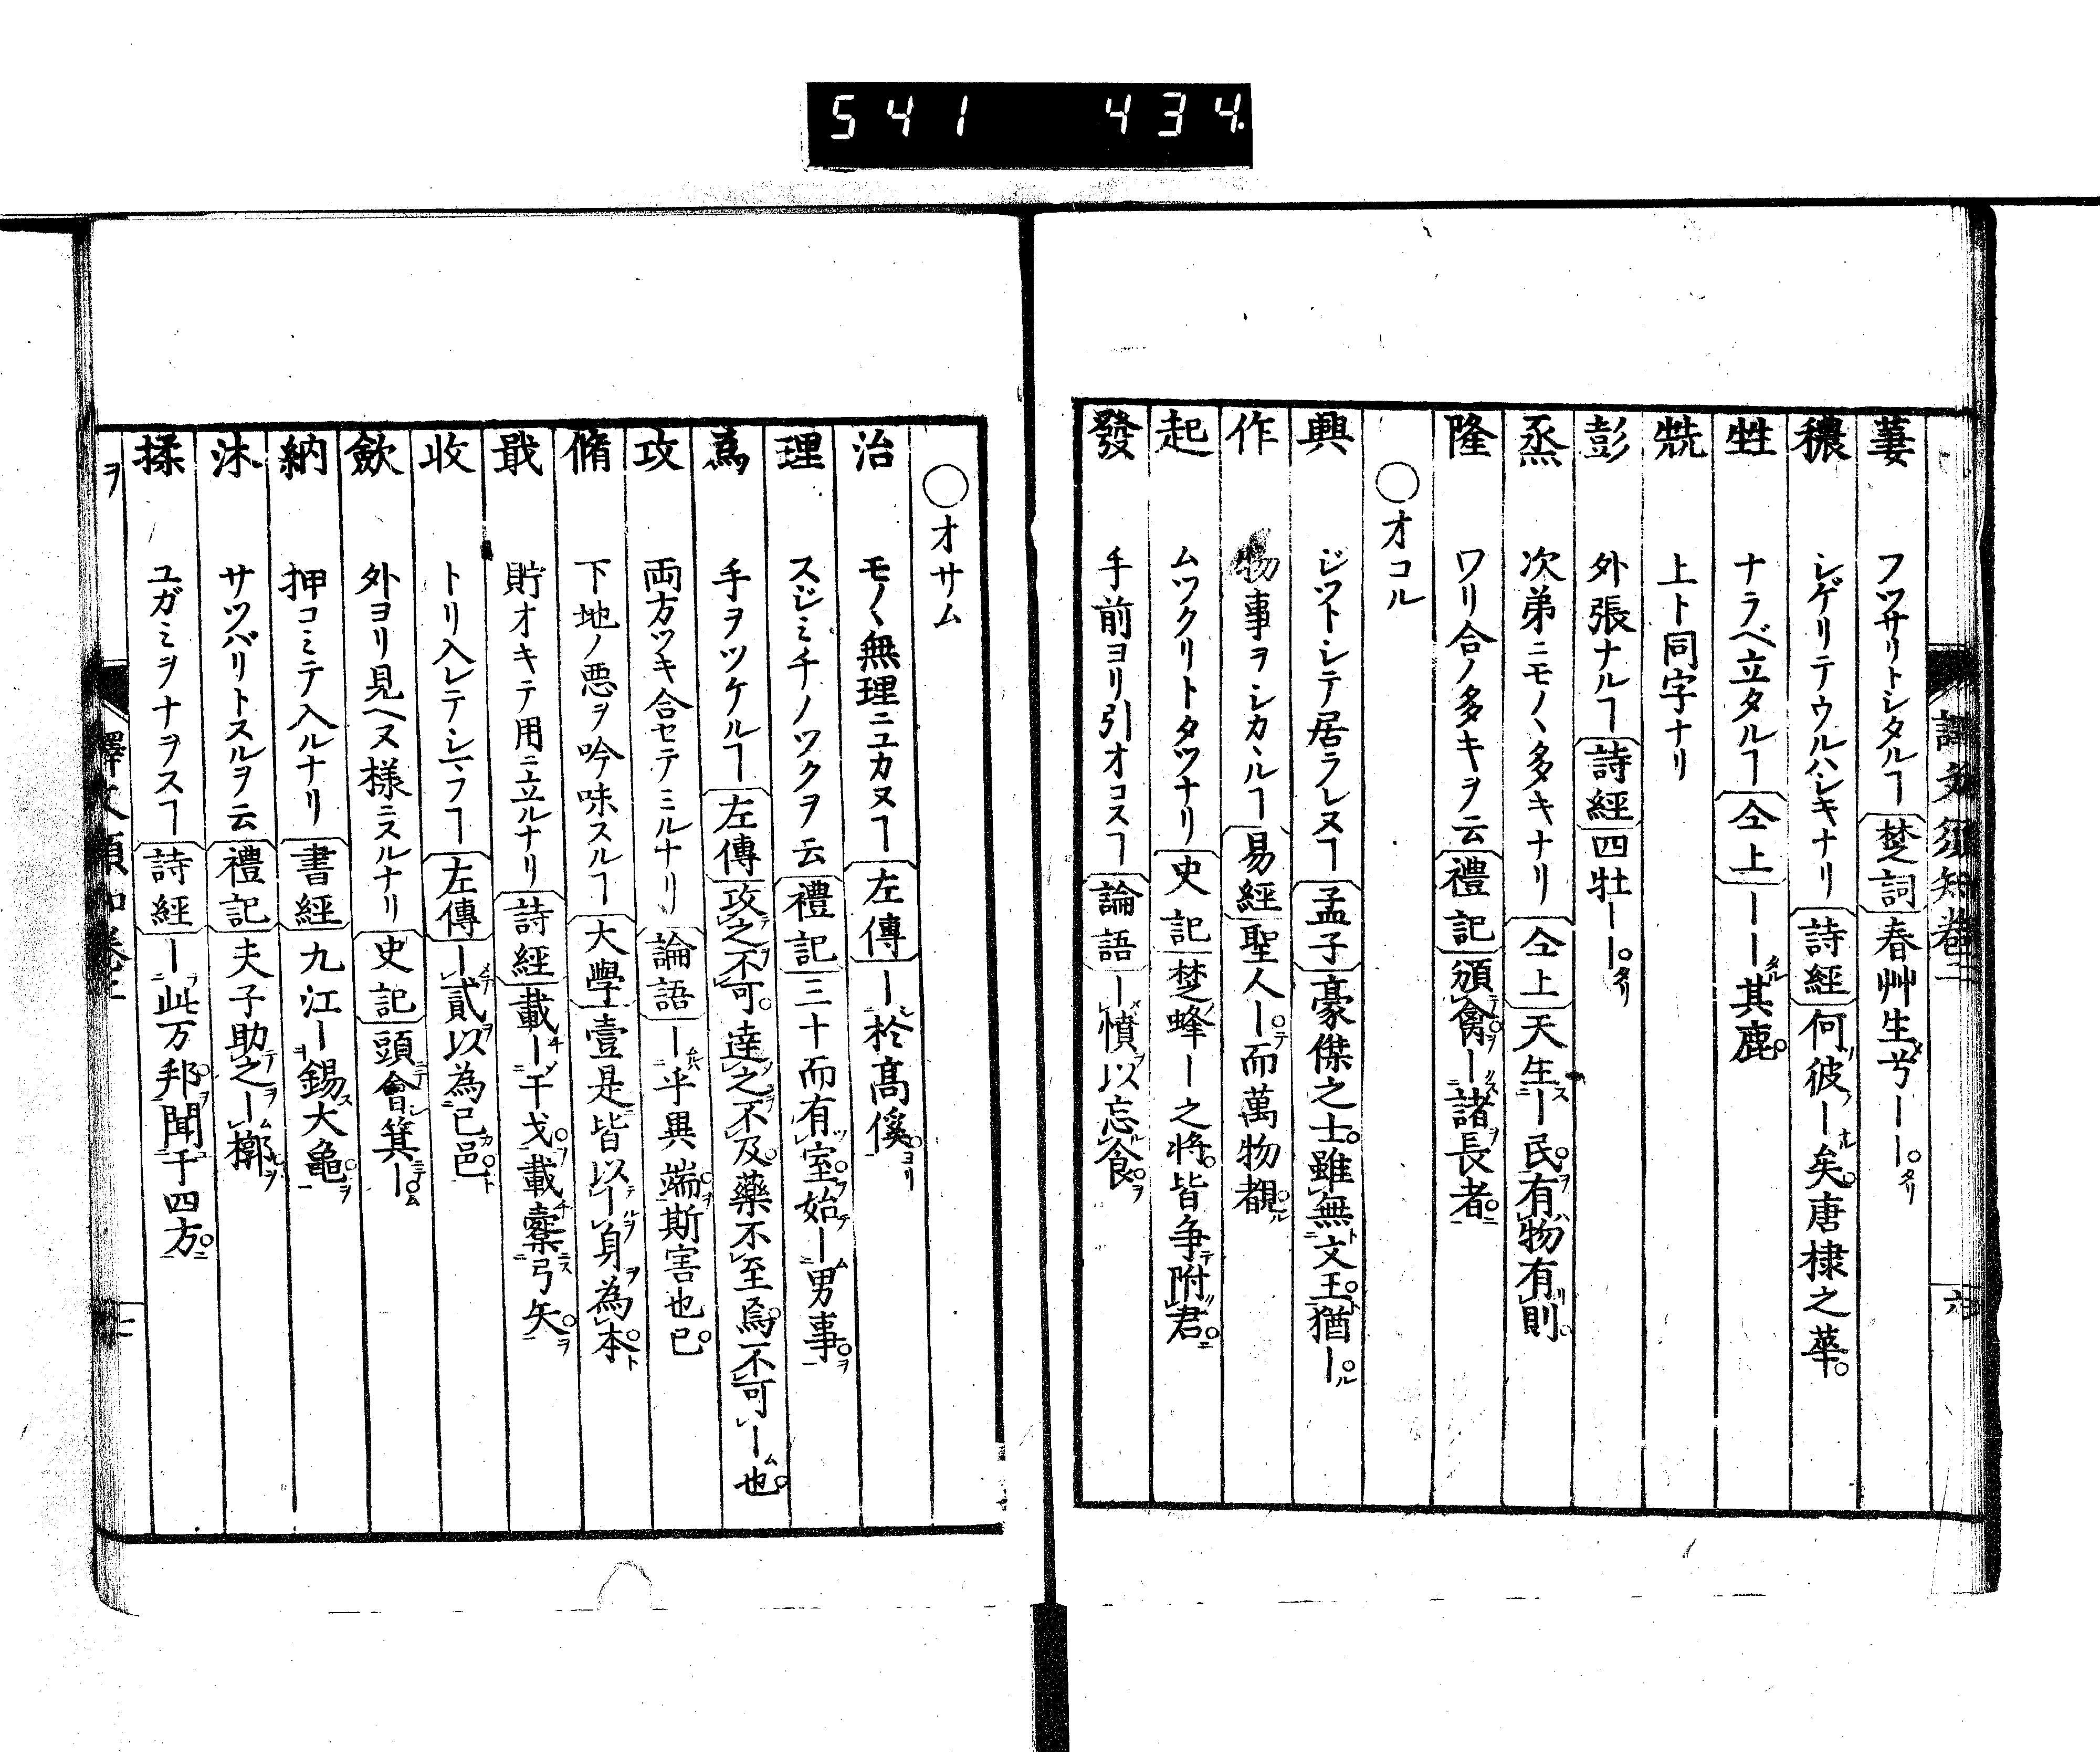 541 434.
譯文須知卷二
萋 フツサリトシタルヿ 楚詞 春艸生兮ーー。タリ
穠 シゲリテウルハシキナリ 詩經 何彼ー矣。唐棣之華。
甡 ナラベ立タルヿ 仝上 ーー其鹿。
兟 上ト同字ナリ
彭 外張ナルヿ 詩經 四牡ーー。タリ
烝 次第ニモノヽ多キナリ 仝上 天生ー民。有物有則。
隆 ワリ合ノ多キヲ云 禮記 頒禽ー諸長者。
○オコル
興 ジツトシテ居ラレヌヿ 孟子 豪傑之士。雖無文王。猶ー。
作 物事ヲシカヽルヿ 易經 聖人ー。而萬物覩。
起 ムツクリトタツナリ 史記 楚蜂ー之將。皆争附君。
發 手前ヨリ引オコスヿ 論語 ー憤以忘食。
六
○オサム
治 モノヽ無理ニユカヌヿ 左傳 ー於高傒。ヨリ
理 スジミチノツクヲ云 禮記 三十而有室。始ー男事。
爲 手ヲツケルヿ 左傳 攻之不可。達之不及。藥不至焉。不可ー也。
攻 両方ツキ合セテミルナリ 論語 ー乎異端。斯害也已。
脩 下地ノ悪ヲ吟味スルヿ 大學 壹是皆以ー身為本。
戢 貯オキテ用ニ立ルナリ 詩經 載ー干戈。載櫜弓矢。
收 トリ入レテシマフヿ 左傳 ー貳以為已邑。
歛 外ヨリ見ヘヌ様ニスルナリ 史記 頭會箕ー。
納 押コミテ入ルナリ 書經 九江ー錫大龜。
沐 サツバリトスルヲ云 禮記 夫子助之ー槨。
揉 ユガミヲナヲスヿ 詩經 ー此万邦。聞于四方。
ヲ
譯文須知卷二
七